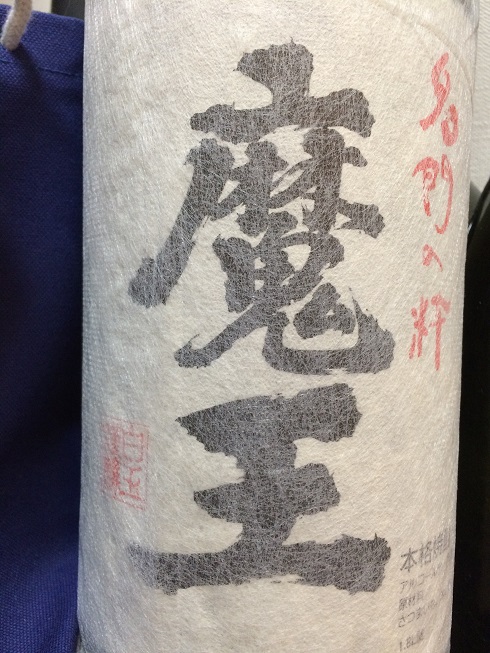 名門の粋
魔王
本格焼
アルコール
原材料
さつま
1.8L